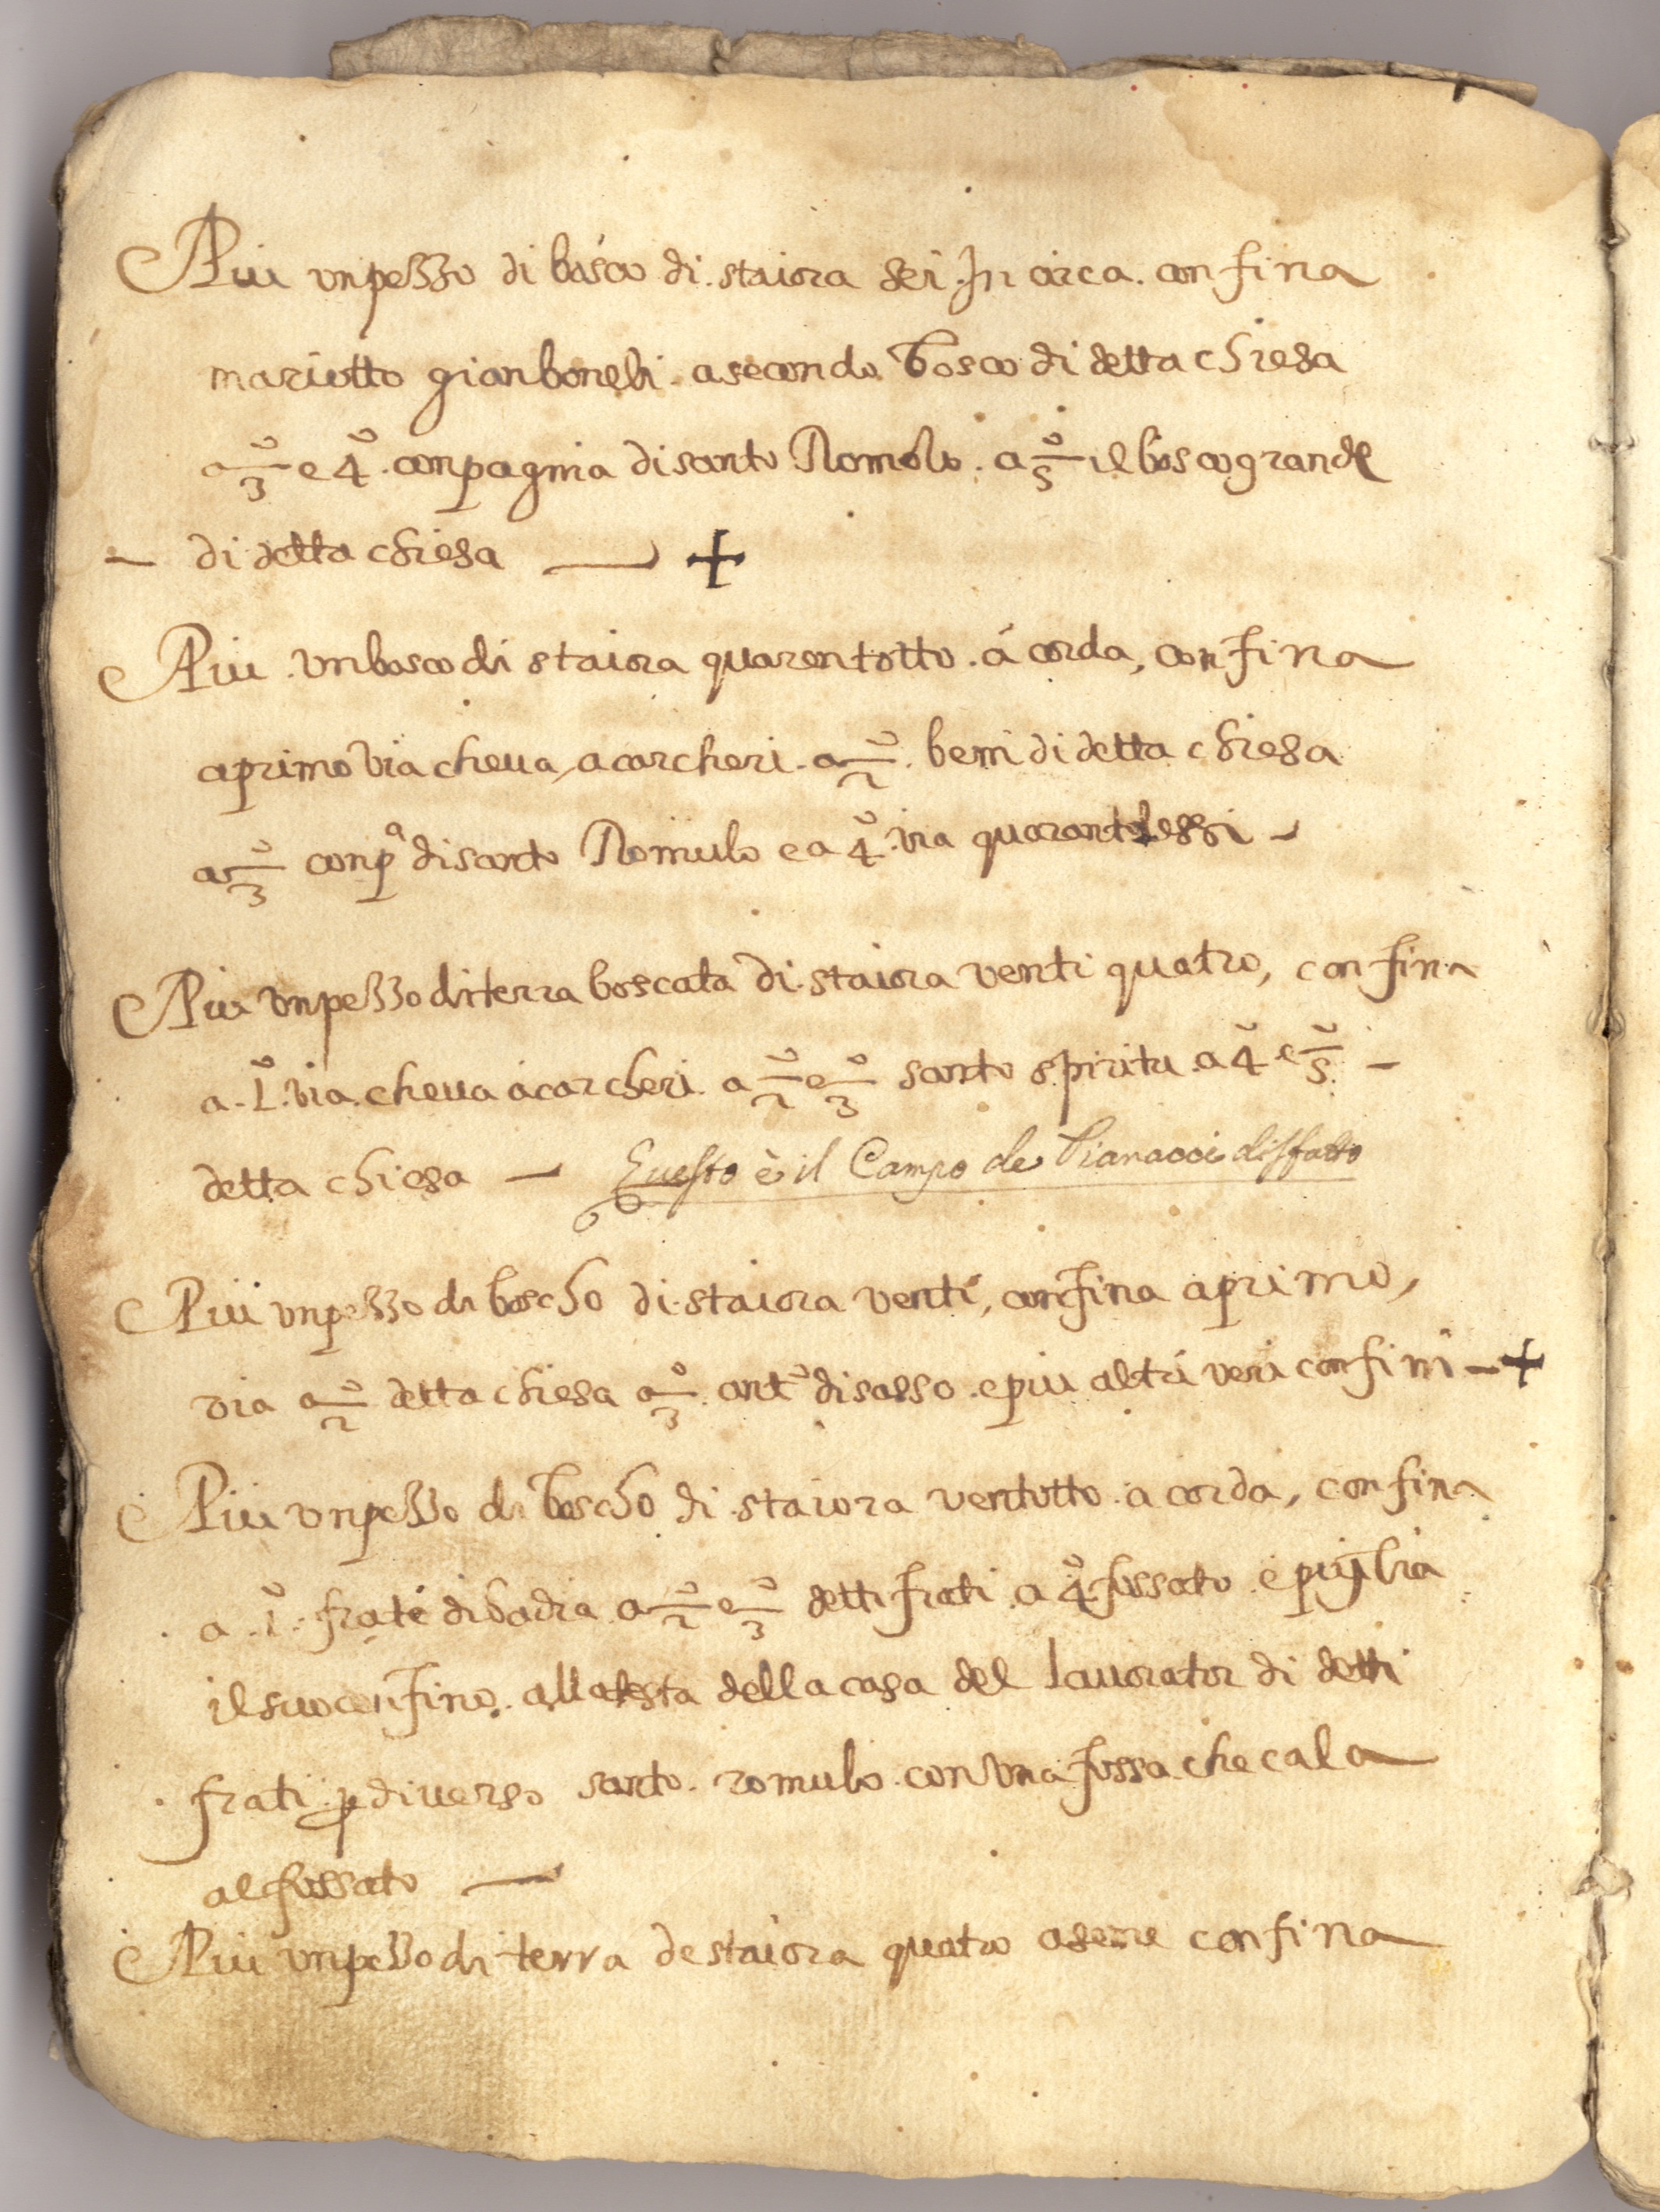 Piu un pezzo di bosco di staiora sei In circa. confina
mariotto gianbonelli. a secondo bosco di detta chiesa
a 3º e 4º. compagnia di santo Romolo. a 5º il bosco grande
— di detta chiesa — +
Piu un bosco di staiora quarentotto. á corda, confina
a primo via che va, a carcheri. a 2º. beni di detta chiesa
a 3º conpª di santo Romulo e a 4º. via —
Piu un pezzo di terra boscata di staiora venti quatro, confina
a. 1º. via. che va a carcheri. a 2º e 3º santo spiritu. a 4º e 5º. —
detta chiesa — Questo è il Campo de Pianacci disfatto
Piu un pezzo di boscho di staiora venti, confina a primo,
via a 2º detta chiesa a 3º. antº di sasso. e piu altri veri confini — +
Piu un pezzo di boscho di staiora ventotto. a corda, confina
a. 1º. frati di badia. a 2º e 3º detti frati. a 4º fossato e piglia
il suo confino. alla testa della casa del lavorator di detti
frati. p diverso santo. romulo. con una fossa. che cala
al fossato —
Piu un pezzo di terra de staiora quatro a seme confina